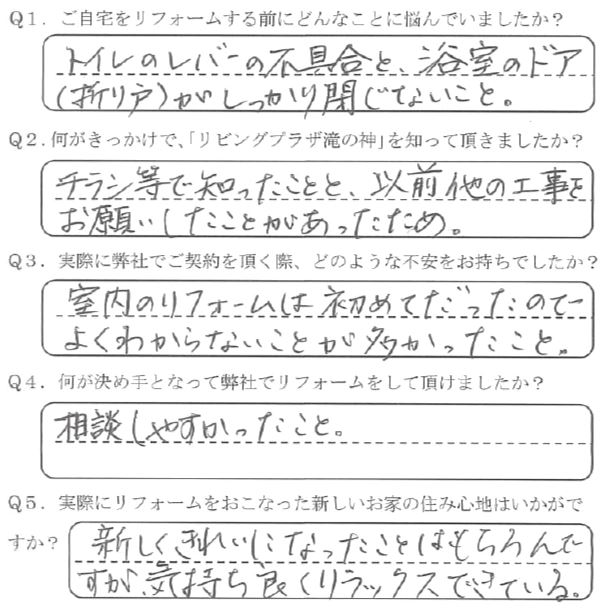 Q1．ご自宅をリフォームする前にどんなことに悩んでいましたか？
トイレのレバーの不具合と、浴室のドア
(折り戸)がしっかり閉じてないこと。
Q2．何がきっかけで、「リビングプラザ滝の神」を知って頂きましたか？
チラシ等で知ったことと、以前他の工事を
お願いしたことがあったため。
Q3．実際に弊社でご契約を頂く際、どのような不安をお持ちでしたか？
室内のリフォームは初めてだったので
よくわからないことが多かったこと。
Q4．何が決め手となって弊社でリフォームをして頂けましたか？
相談しやすかったこと。
Q5．実際にリフォームをおこなった新しいお家の住み心地はいかがで
すか？
新しくきれいになったことはもちろんで
すが、気持ち良くリラックスできている。